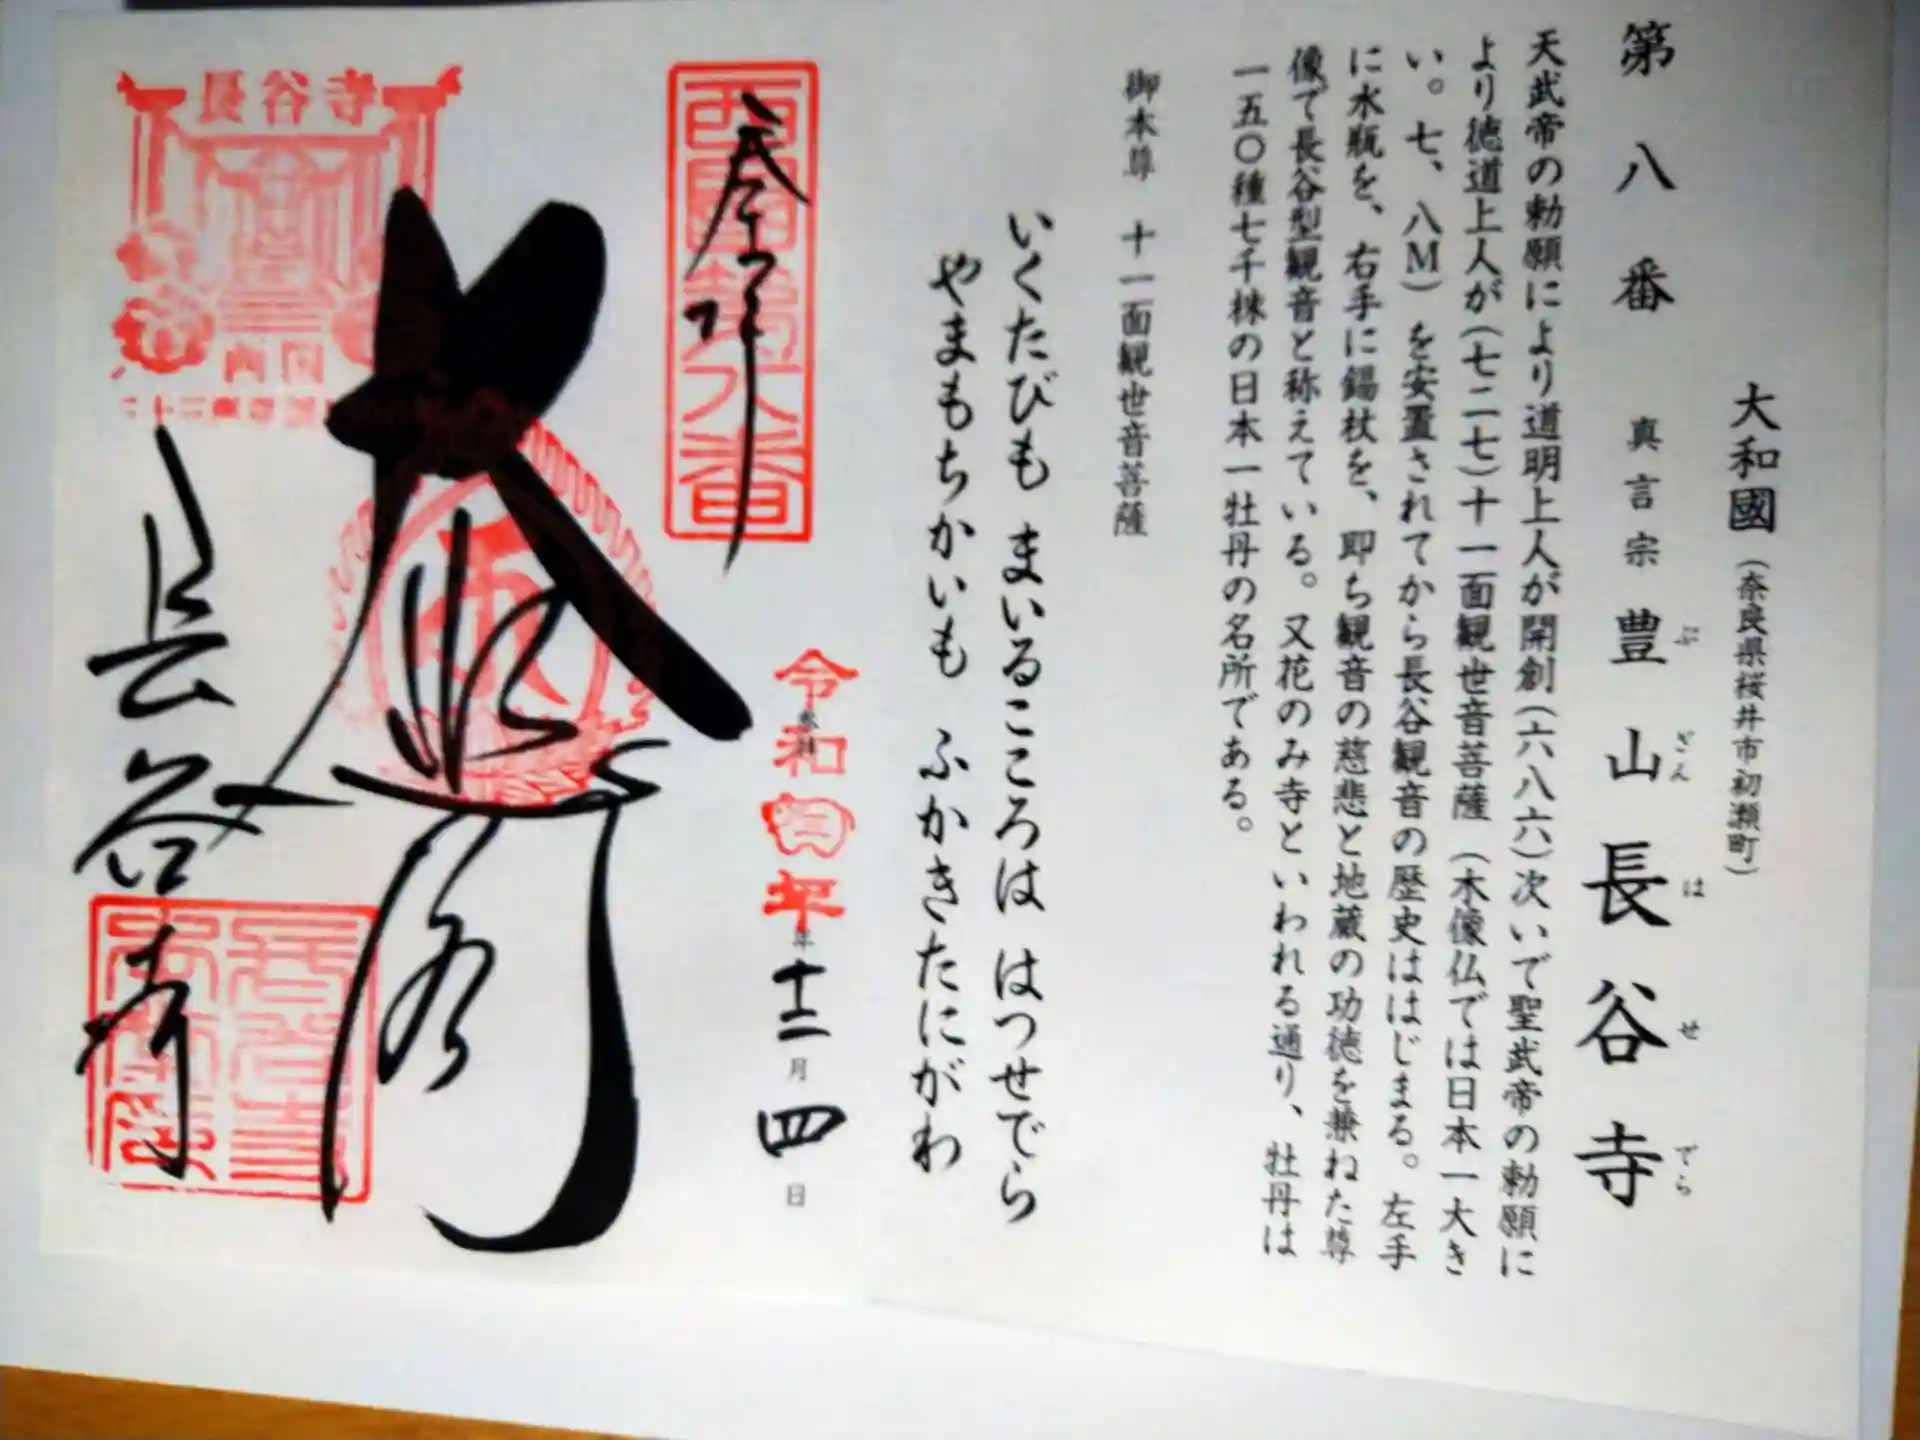 大和國(奈良県桜井市初瀬町)
第八番 真言宗 豊山長谷寺
ぶざん はせでら
天武帝の勅願により道明上人が開創(六八六)次いで聖武帝の勅願に
より徳道上人が(七二七)十一面観世音菩薩(木像仏では日本一大き
い。七、八M)を安置されてから長谷観音の歴史ははじまる。左手
に水瓶を、右手に錫杖を、即ち観音の慈悲と地蔵の功徳を兼ねた尊
像で長谷型観音と称えている。又花のみ寺といわれる通り、牡丹は
一五〇種七千株の日本一牡丹の名所である。
御本尊 十一面観世音菩薩
いくたびも まいるこころは はつせでら
やまもちかいも ふかきたにがわ
西国第八番
奉拝
令和四年十二月四日
大悲閣
長谷寺
長谷寺
西国